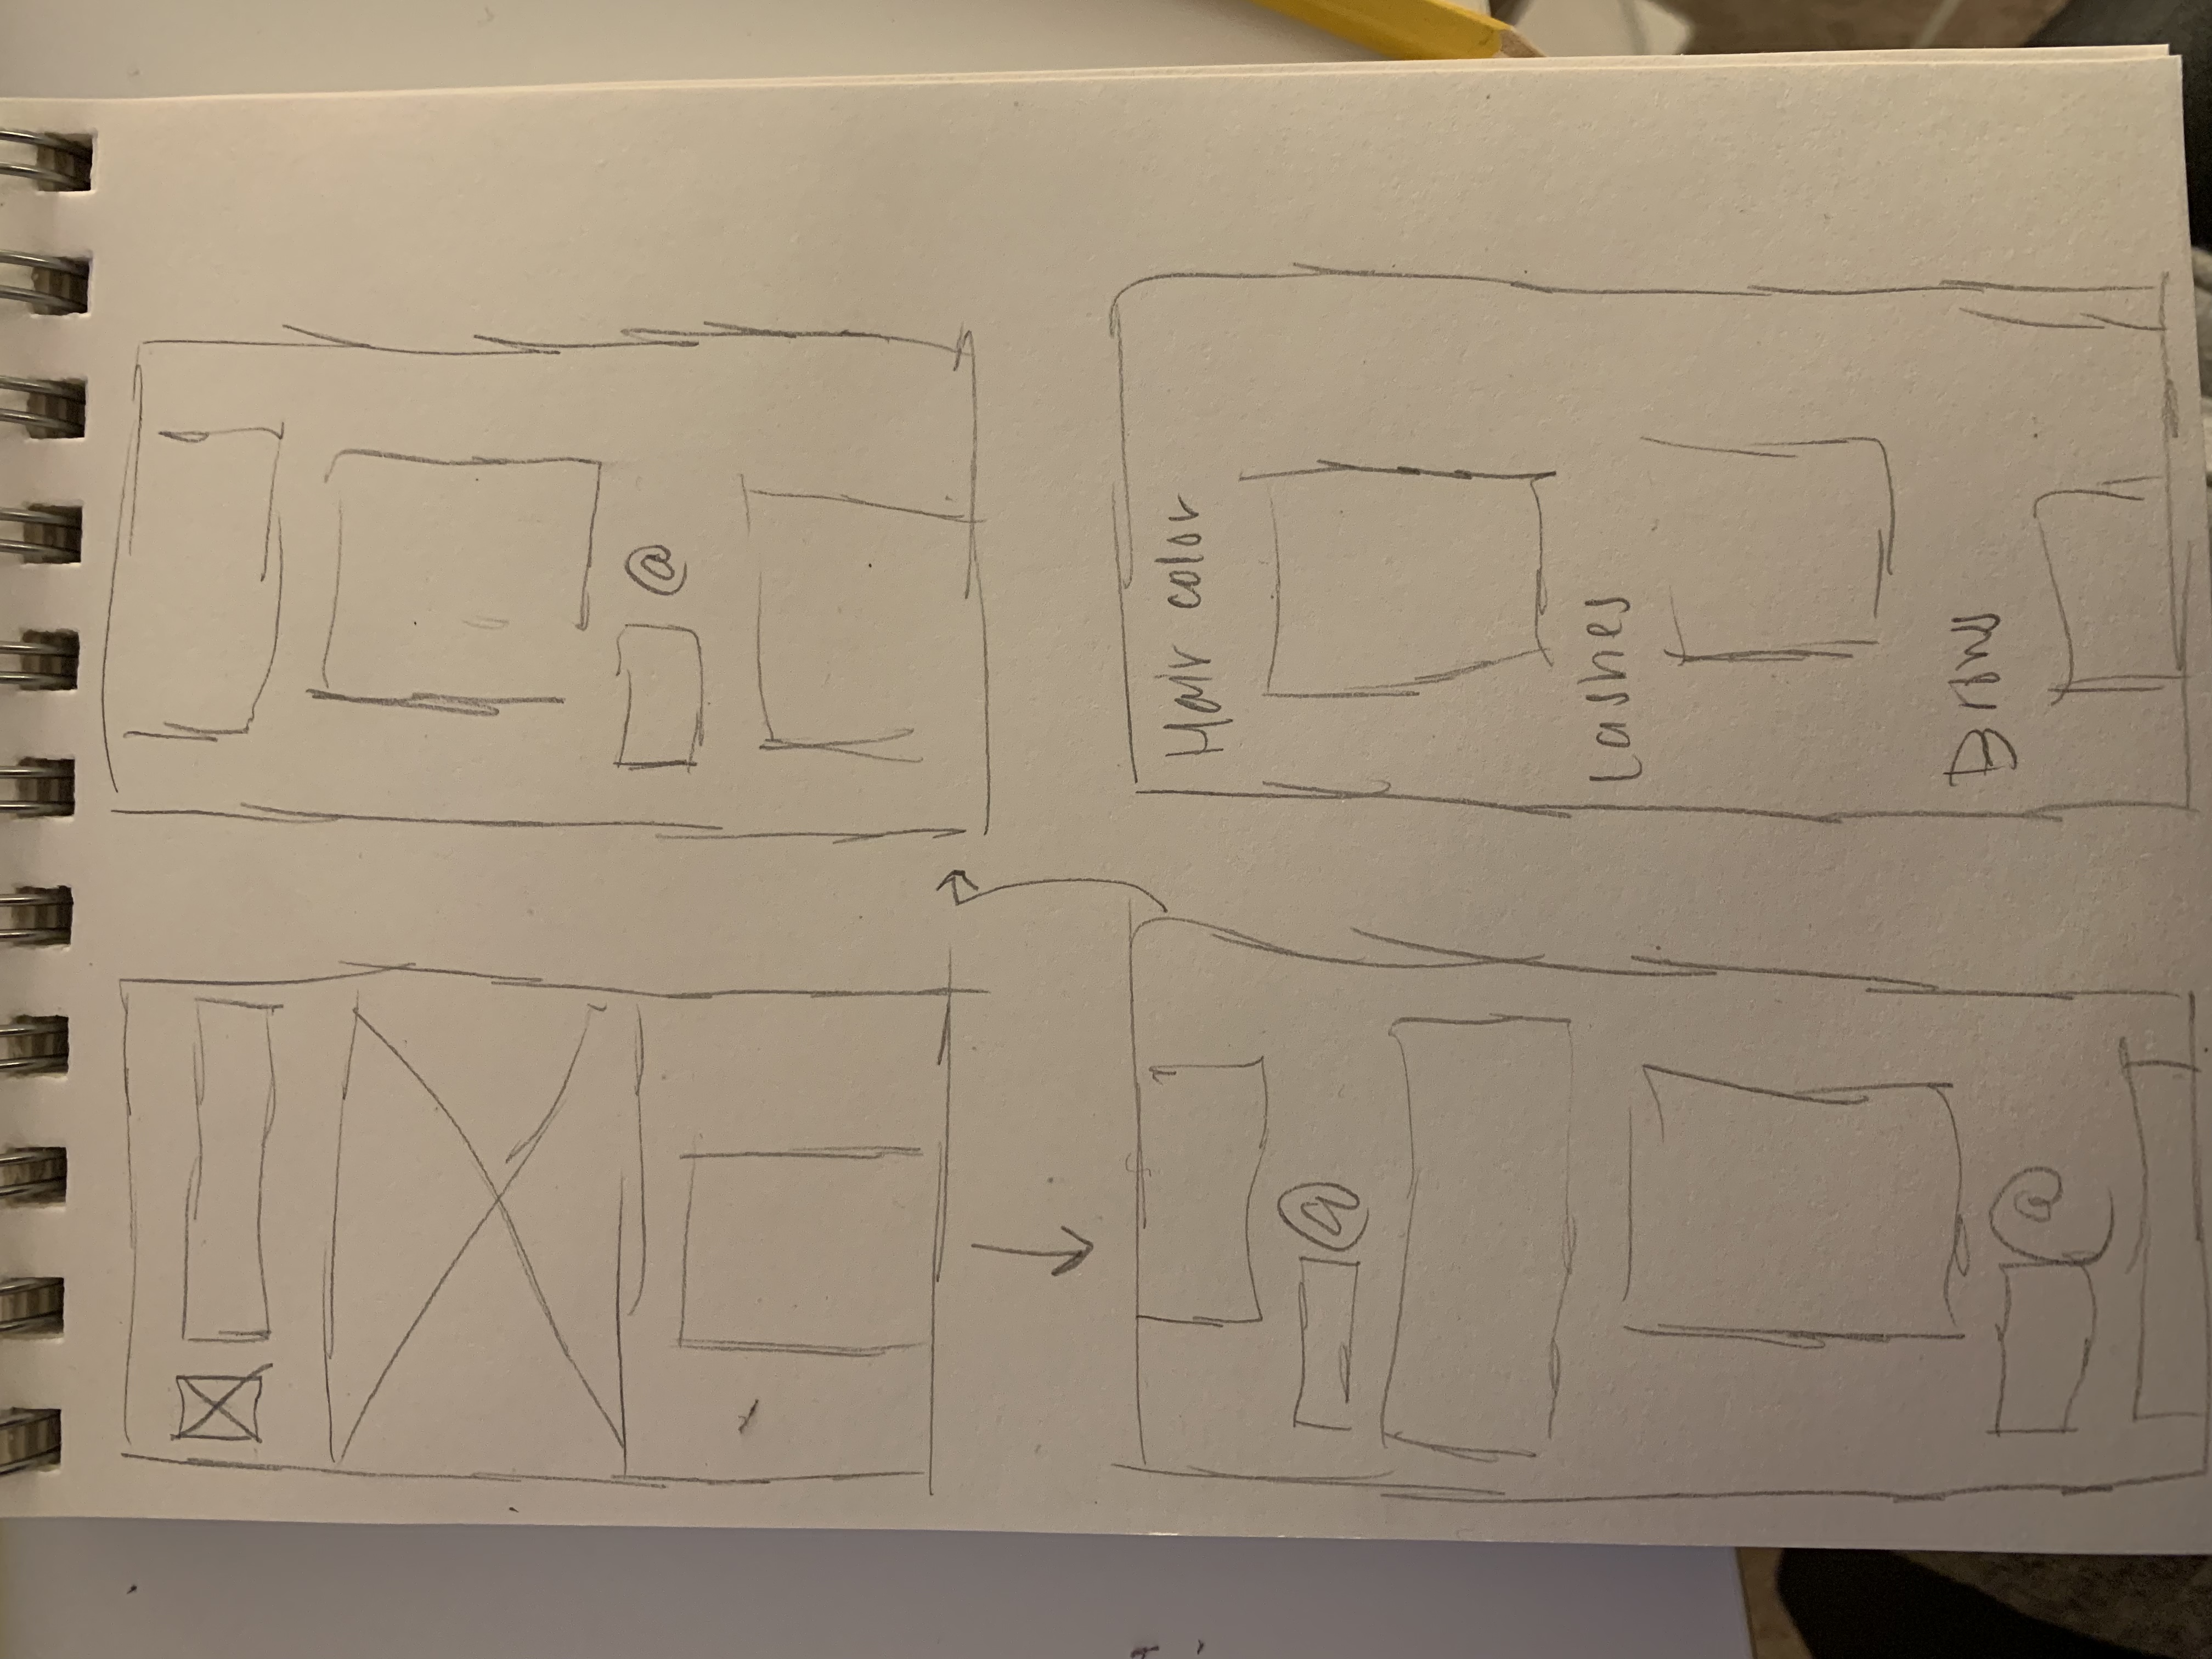 @
@
@
Hair color
Lashes
Brows